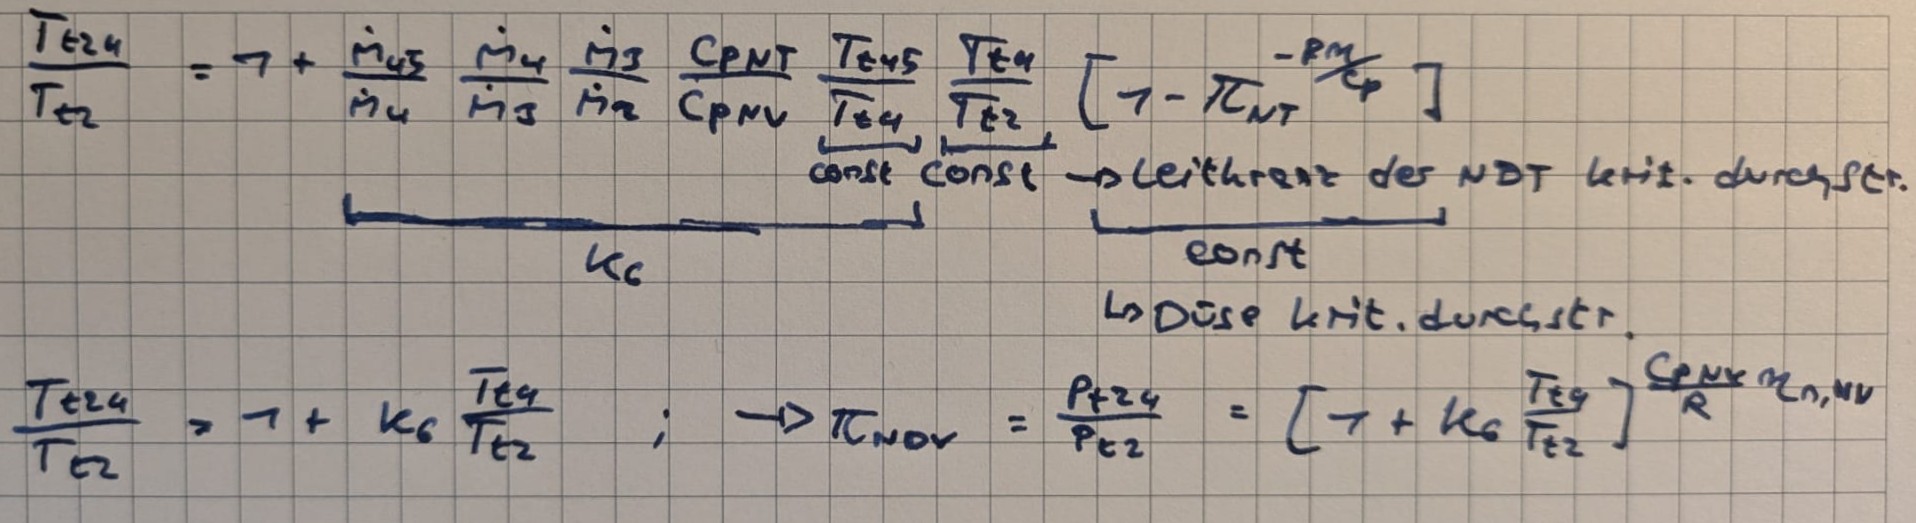 T_t24/T_t2 = 1 + ṁ_45/ṁ_4 ṁ_4/ṁ_3 ṁ_3/ṁ_2 C_PNT/C_PNV T_t45/T_t4 T_t4/T_t2 [1 - π_NT^(-Rη/C_P)]
const const → Leitkranz der NDT krit. durchstr.
K_6 const
↳ Düse krit. durchstr.
T_t24/T_t2 = 1 + K_6 T_t4/T_t2 ; → π_NDV = P_t24/P_t2 = [1 + K_6 T_t4/T_t2]^(C_PNV/R η_n,NV)